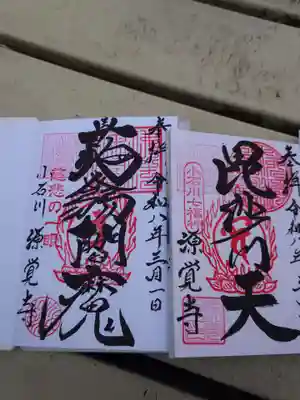 奉拝 令和八年三月一日
蒟蒻閻魔
慈悲の一眼
小石川 源覚寺
奉拝 令和八年三
毘沙門天
小石川七福
源覚寺